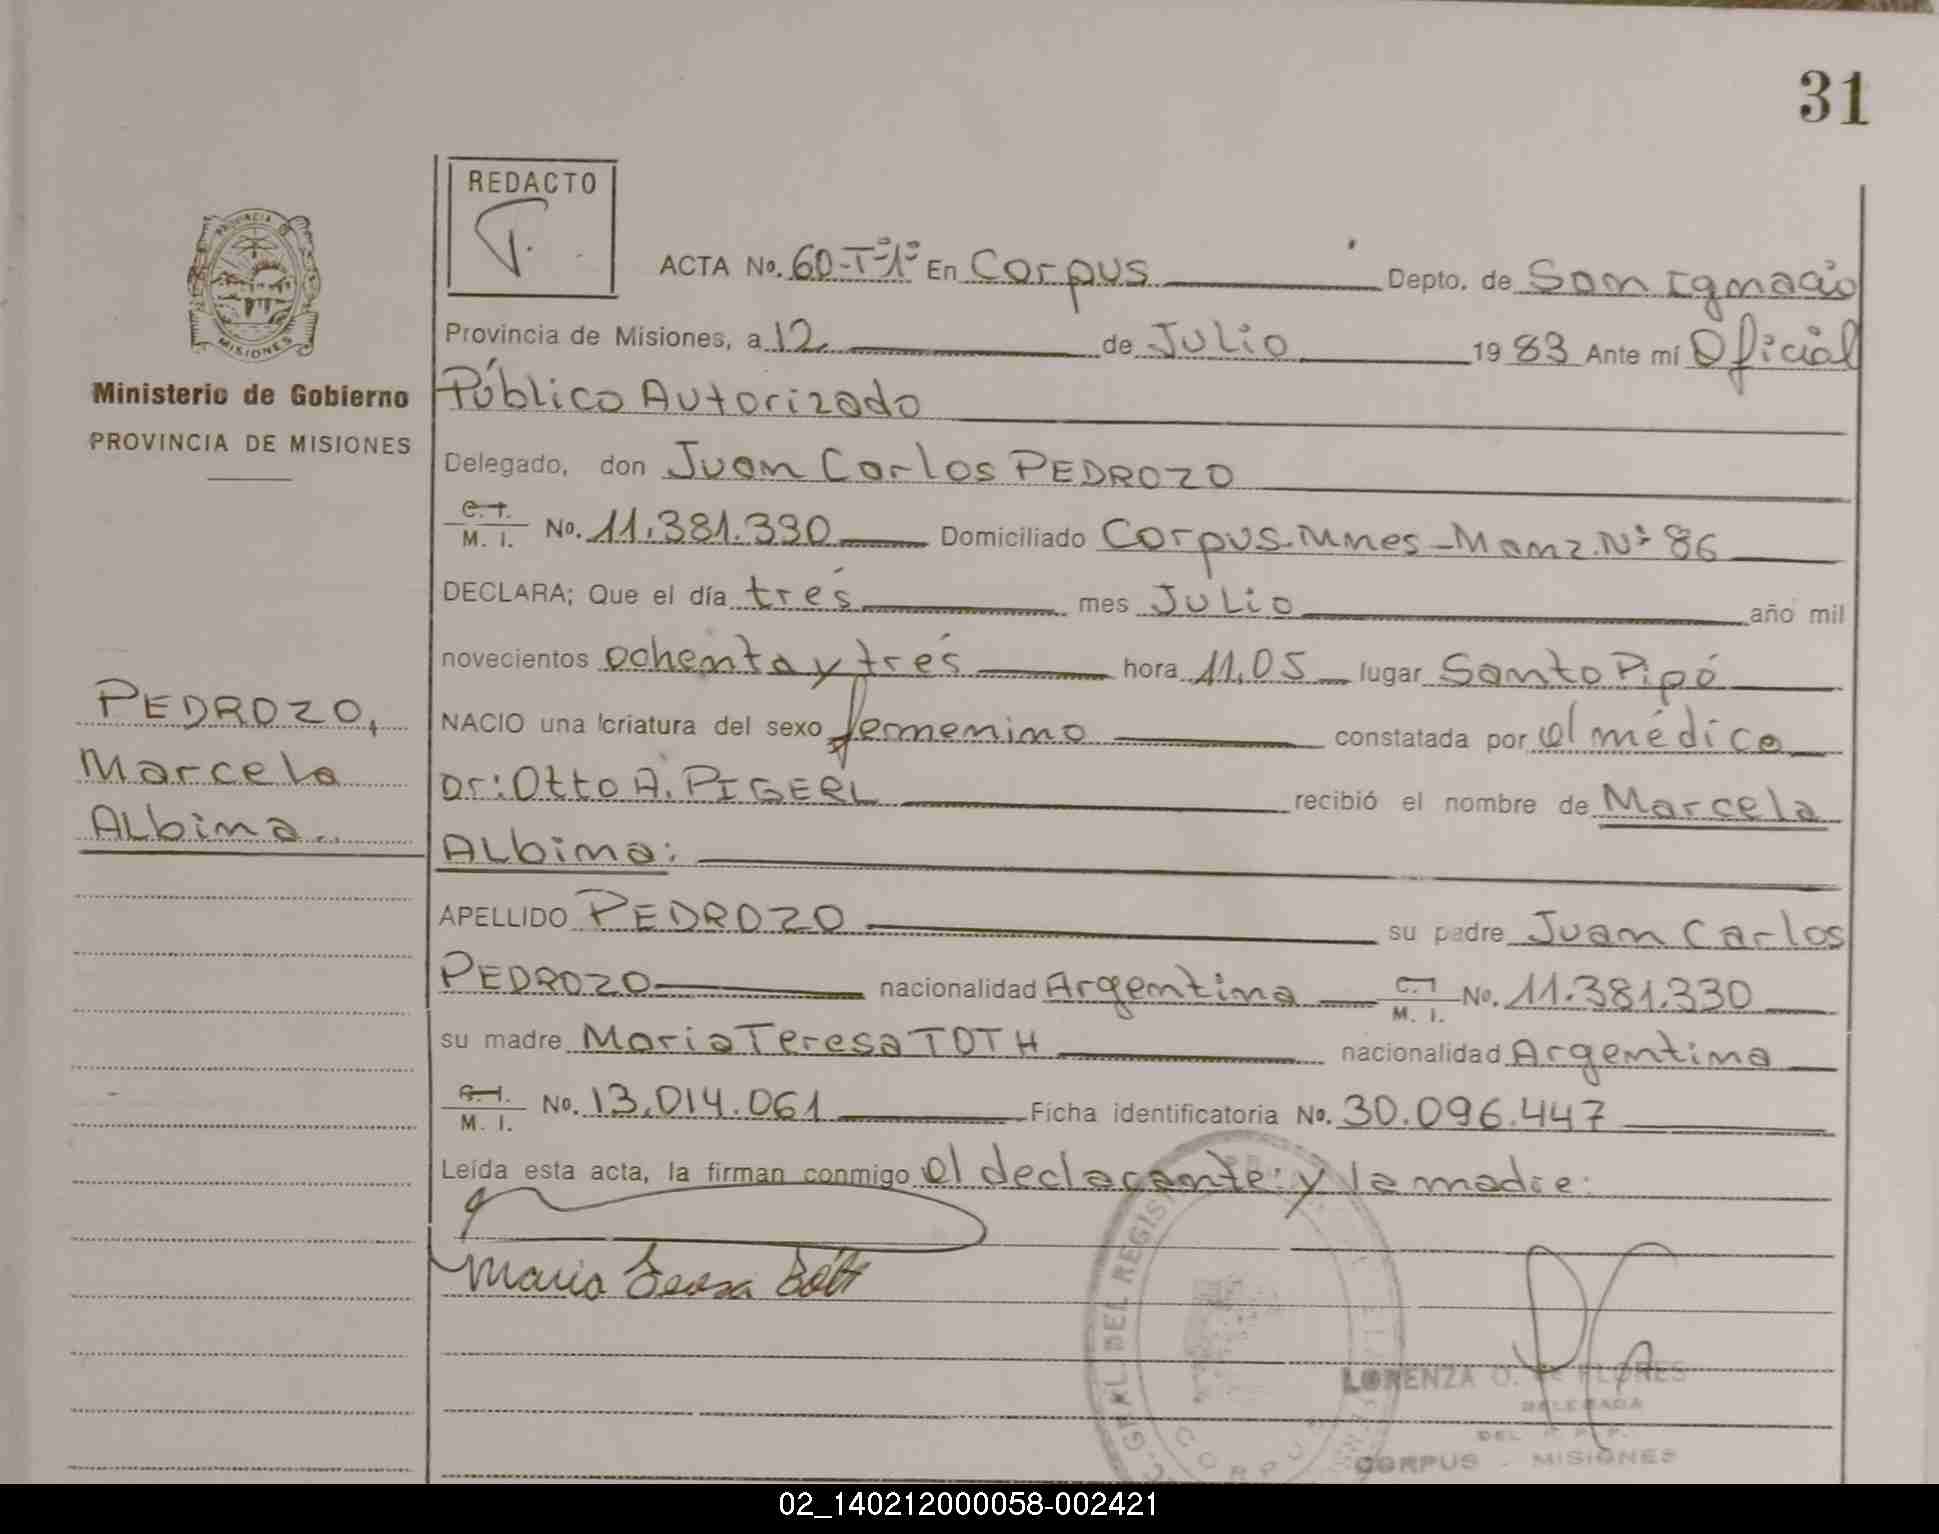 31
REDACTO
PROVINCIA
MISIONES
Ministerio de Gobierno
PROVINCIA DE MISIONES
ACTA No. 60-Tº1º En Corpus Depto. de San Ignacio
Provincia de Misiones, a 12 de Julio 1983 Ante mí Oficial
Público Autorizado
Delegado, don Juan Carlos PEDROZO
C.I. M. I. No. 11.381.330 Domiciliado Corpus.Mnes-Manz.Nº 86
DECLARA; Que el día trés mes Julio año mil
novecientos ochenta y trés hora 11,05 lugar Santo Pipó
NACIO una criatura del sexo femenino constatada por el médico
Dr: Otto A. PIGERL recibió el nombre de Marcela
Albina:
PEDROZO,
Marcela
Albina..
APELLIDO PEDROZO su padre Juan Carlos
PEDROZO nacionalidad Argentina C.I M. I. No. 11.381.330
su madre Maria Teresa TOTH nacionalidad Argentina
C.I. M. I. No. 13.014.061 Ficha identificatoria No. 30.096.447
Leída esta acta, la firman conmigo el declarante: y la madre:
Maria Teresa Toth
GRAL. DEL REGIS
CORPUS
LORENZA O. DE FLORES
DELEGADA
DEL R. P. P.
CORPUS - MISIONES
02_140212000058-002421